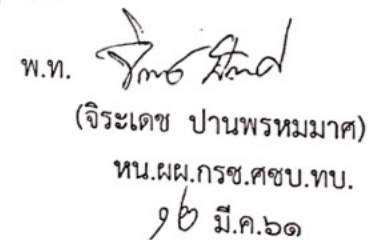 พ.ท.
(จิระเดช ปานพรหมมาศ)
หน.ผผ.กรช.ศซบ.ทบ.
๑๒ มี.ค.๖๑